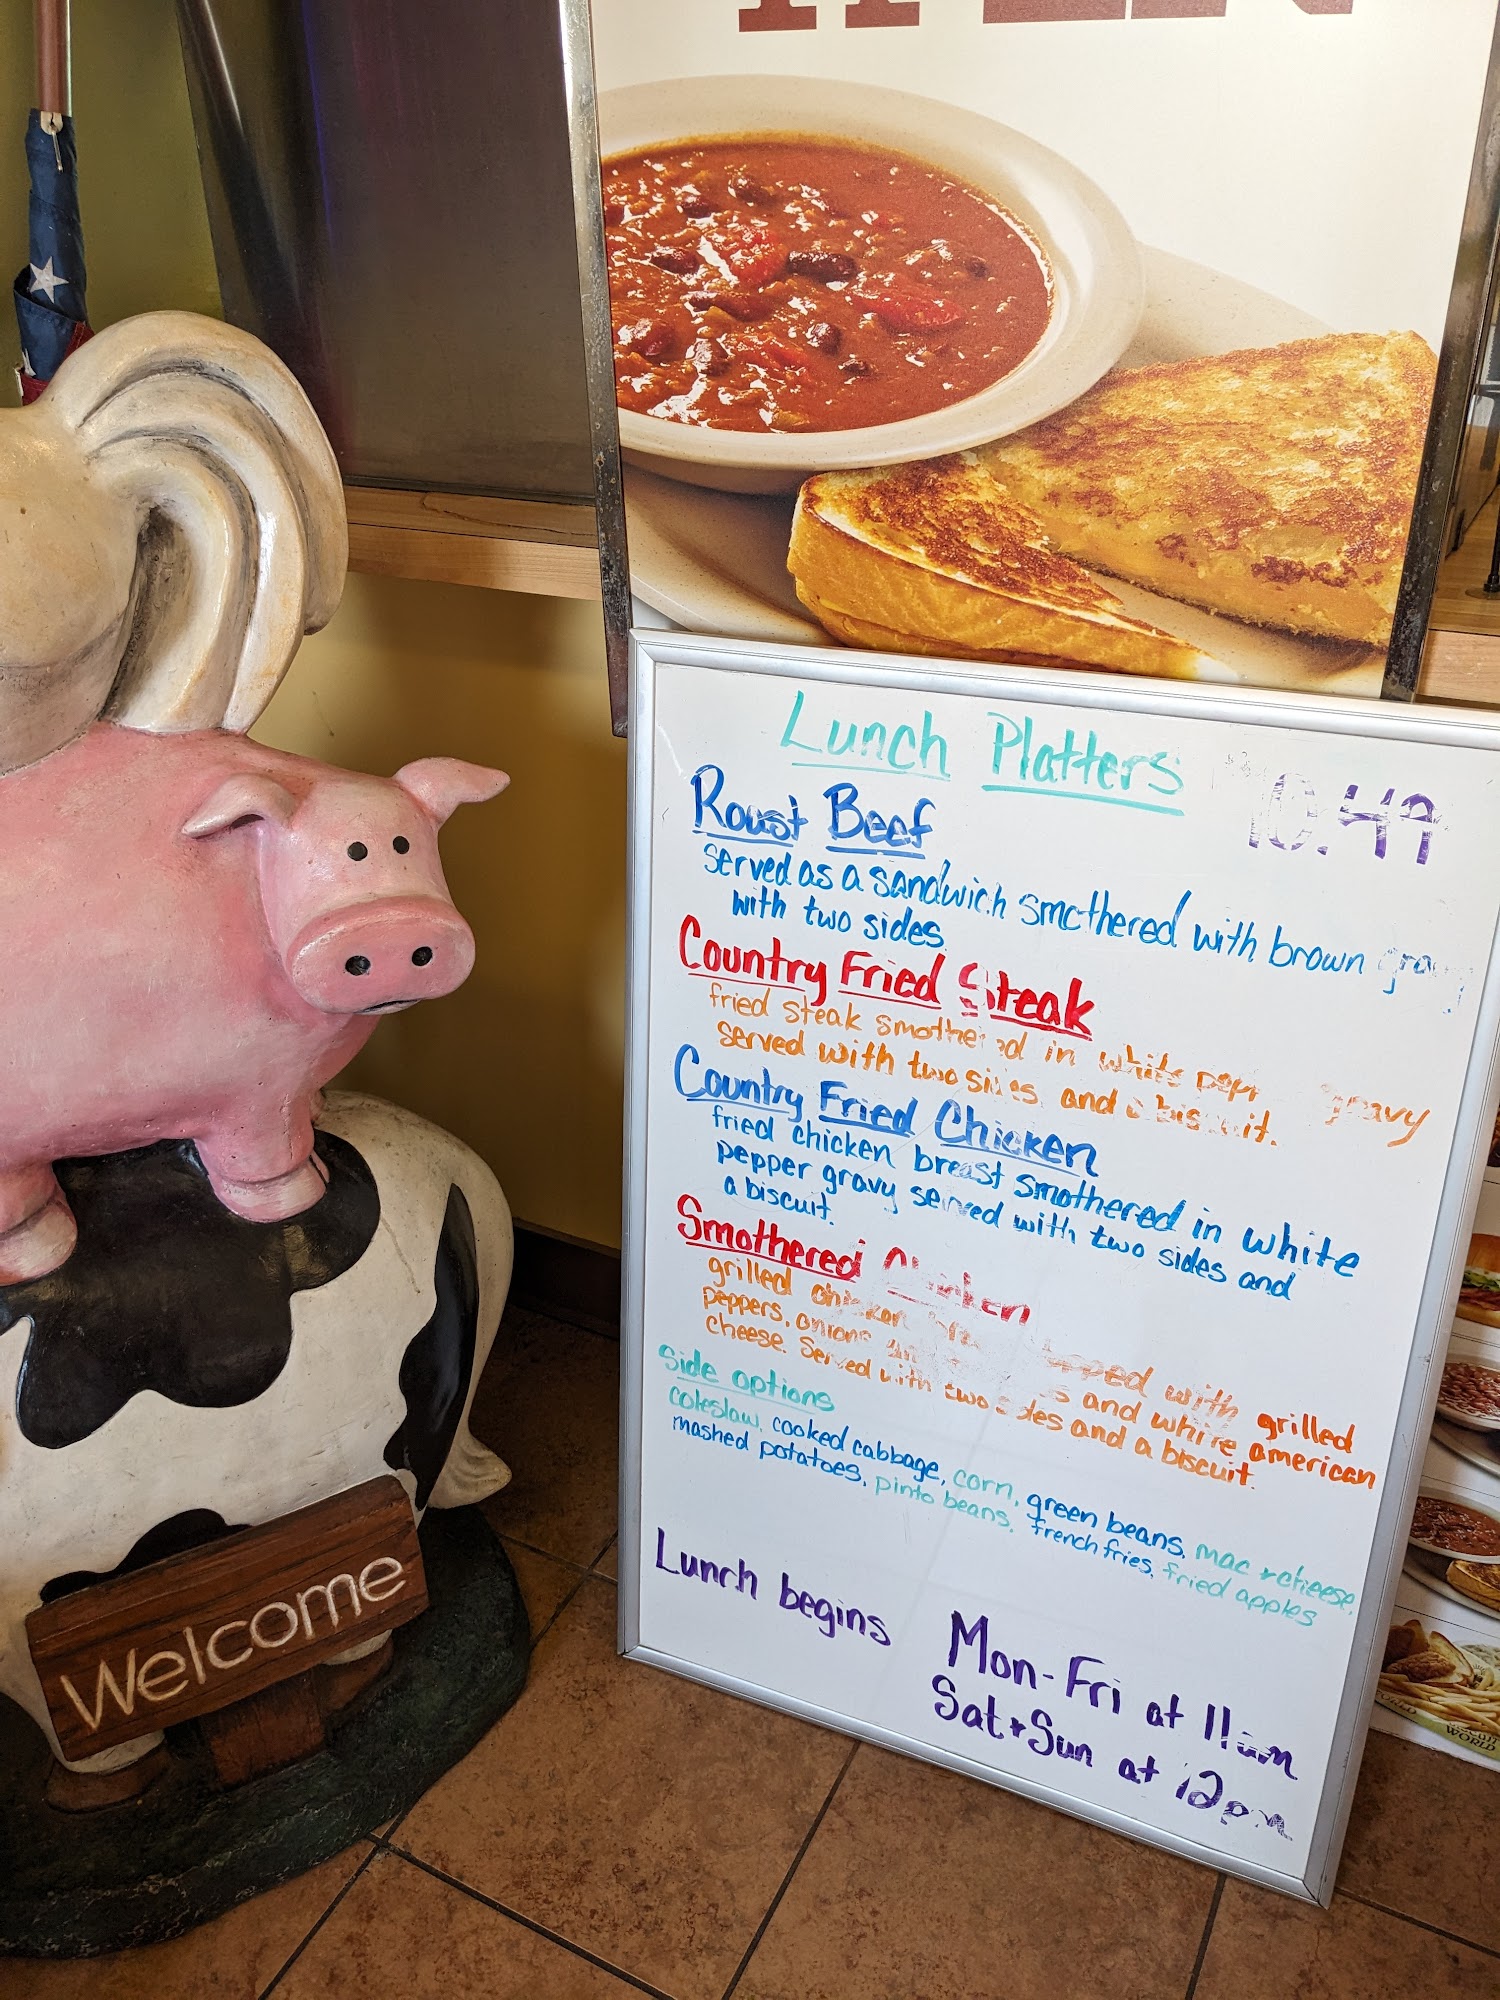 Lunch Platters 10.49
Roast Beef
served as a sandwich smothered with brown
with two sides
Country Fried Steak
fried steak smothered in white gravy
served with two sides and a biscuit.
Country Fried Chicken
fried chicken breast smothered in white
pepper gravy served with two sides and
a biscuit.
Smothered Chicken
grilled chicken topped with grilled
peppers, onions and white american
cheese. Served with two sides and a biscuit.
Side options
coleslaw, cooked cabbage, corn, green beans, mac + cheese,
mashed potatoes, pinto beans, french fries, fried apples
Lunch begins Mon-Fri at 11am
Sat + Sun at 12pm
Welcome
WORLD